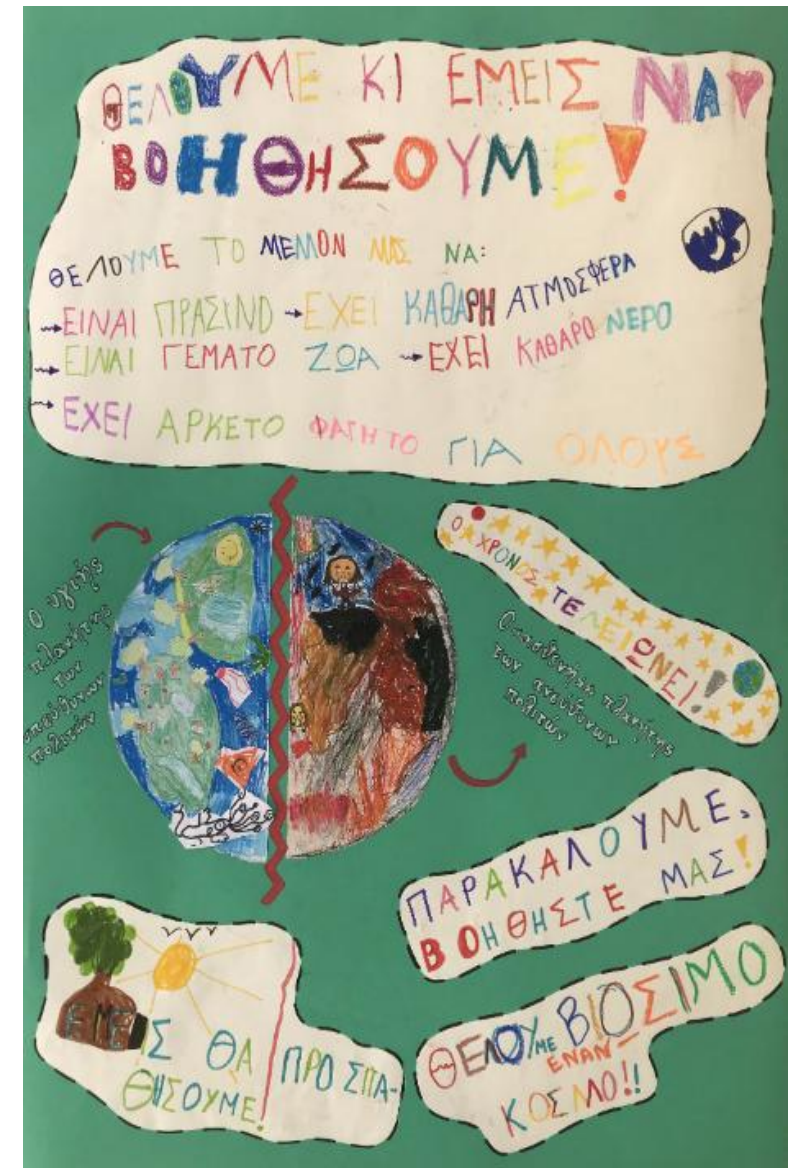 ΘΕΛΟΥΜΕ ΚΙ ΕΜΕΙΣ ΝΑ
ΒΟΗΘΗΣΟΥΜΕ!
ΘΕΛΟΥΜΕ ΤΟ ΜΕΛΛΟΝ ΜΑΣ ΝΑ:
→ΕΙΝΑΙ ΠΡΑΣΙΝΟ →ΕΧΕΙ ΚΑΘΑΡΗ ΑΤΜΟΣΦΕΡΑ
→ΕΙΝΑΙ ΓΕΜΑΤΟ ΖΩΑ →ΕΧΕΙ ΚΑΘΑΡΟ ΝΕΡΟ
→ΕΧΕΙ ΑΡΚΕΤΟ ΦΑΓΗΤΟ ΓΙΑ ΟΛΟΥΣ
Ο υγιής
πλανήτης
των
υπεύθυνων
πολιτών
Ο ΧΡΟΝΟΣ ΤΕΛΕΙΩΝΕΙ!
Ο πλανήτης
των ανεύθυνων
πολιτών
ΠΑΡΑΚΑΛΟΥΜΕ,
ΒΟΗΘΗΣΤΕ ΜΑΣ!
ΕΜΕΙΣ ΘΑ ΠΡΟΣΠΑ-
ΘΗΣΟΥΜΕ!
ΘΕΛΟΥΜΕ ΕΝΑΝ ΒΙΟΣΙΜΟ
ΚΟΣΜΟ!!